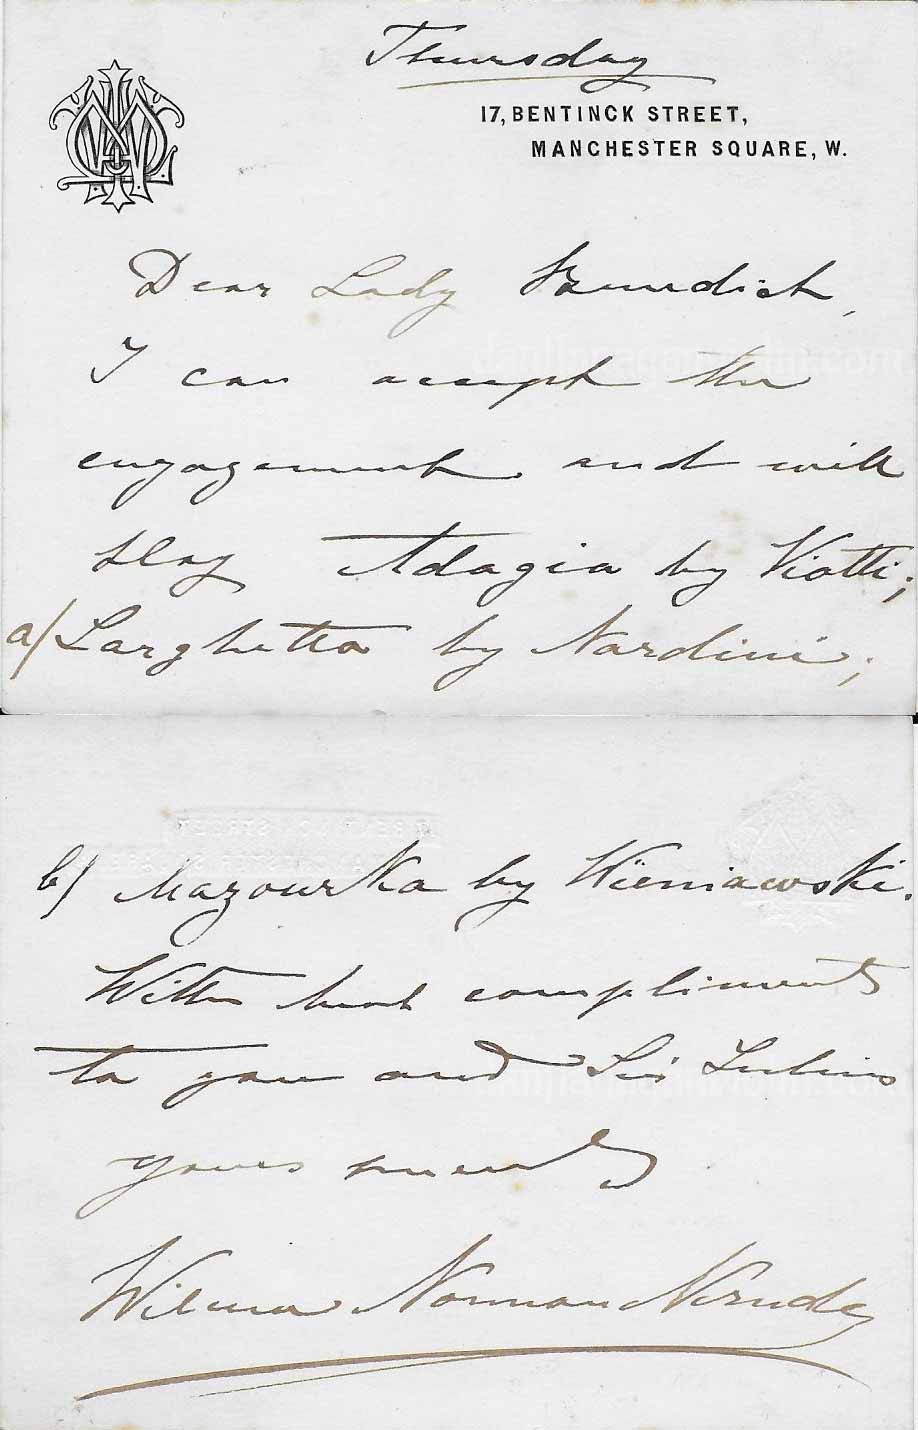 Thursday
17, BENTINCK STREET,
MANCHESTER SQUARE, W.
Dear Lady Benedict,
I can accept the
engagement and will
play Adagio by Viotti;
a/ Larghetto by Nardini;
b/ Mazourka by Wieniawski.
With best compliments
to you and Sir Julius
yours sincerely
Wilma Norman Neruda